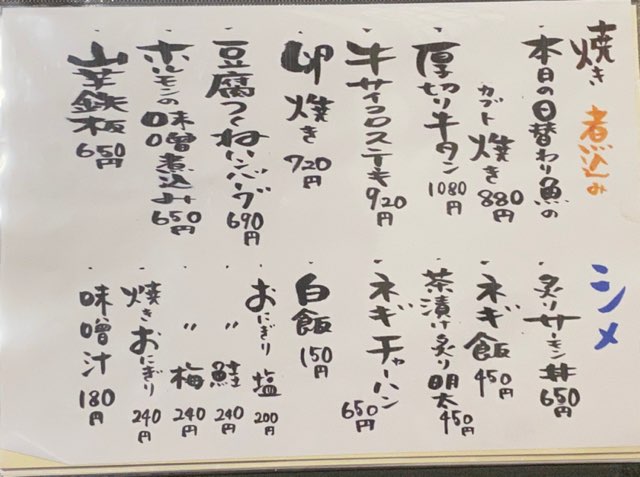 焼き 煮込み
・本日の日替わり魚の
カブト焼き 880円
・厚切り牛タン 1080円
・牛サイコロステーキ 920円
・卵焼き 720円
・豆腐つくねハンバーグ 690円
・ホルモンの味噌煮込み 650円
・山芋鉄板 650円
シメ
・炙りサーモン丼 650円
・ネギ飯 450円
・茶漬け炙り明太 450円
・ネギチャーハン 650円
・白飯 150円
・おにぎり 塩 200円
・〃 鮭 240円
・〃 梅 240円
・焼きおにぎり 240円
・味噌汁 180円